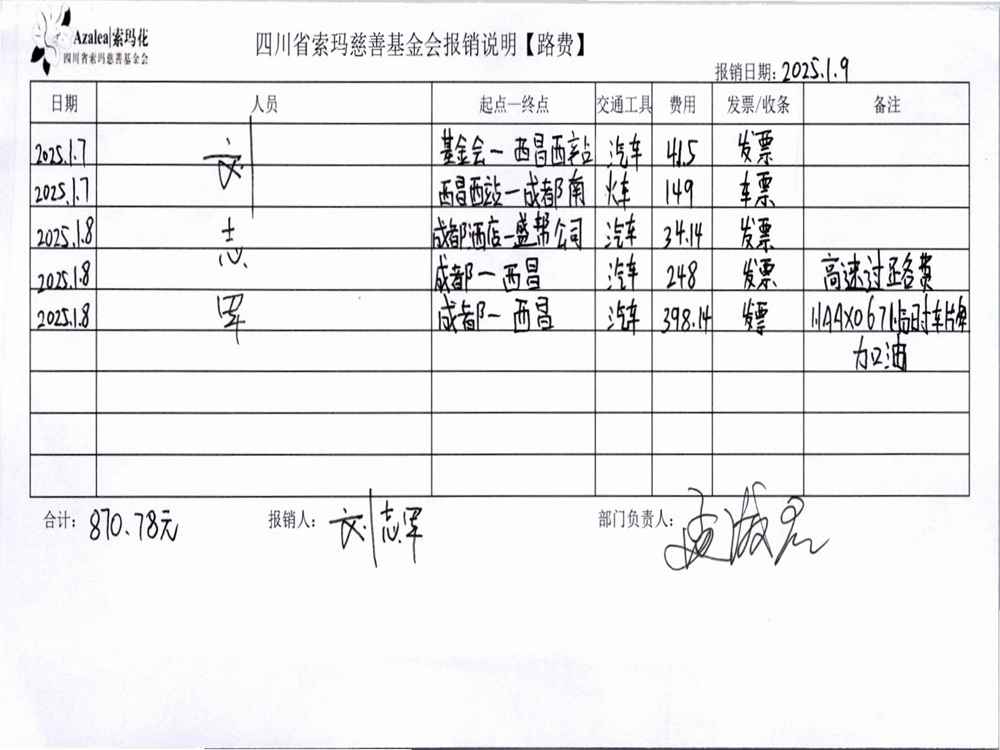 Azalea|索玛花
四川省索玛慈善基金会
四川省索玛慈善基金会报销说明【路费】
报销日期：2025.1.9
日期 人员 起点—终点 交通工具 费用 发票/收条 备注
2025.1.7 刘 基金会—西昌西站 汽车 41.5 发票
2025.1.7 西昌西站—成都南 火车 149 车票
2025.1.8 志 成都酒店—盛帮公司 汽车 34.14 发票
2025.1.8 成都—西昌 汽车 248 发票 高速过路费
2025.1.8 军 成都—西昌 汽车 398.14 发票 川AAX0671临时车牌
加油
合计：870.78元 报销人：刘志军 部门负责人：